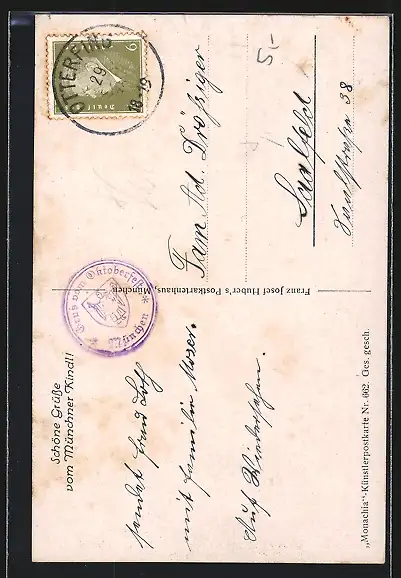 Schöne Grüße
vom Münchner Kindl!
sendet
mit Familie Moser.
Auf Wiedersehen.
„Monachia“-Künstlerpostkarte Nr. 662. Ges. gesch.
Franz Josef Huber's Postkartenhaus, München
* Gruss vom Oktoberfest *
München
OTTERFING
29
18-19
6
Deutsches
5,-
Fam. Ad. Drößiger
Saalfeld
Saalstraße 38